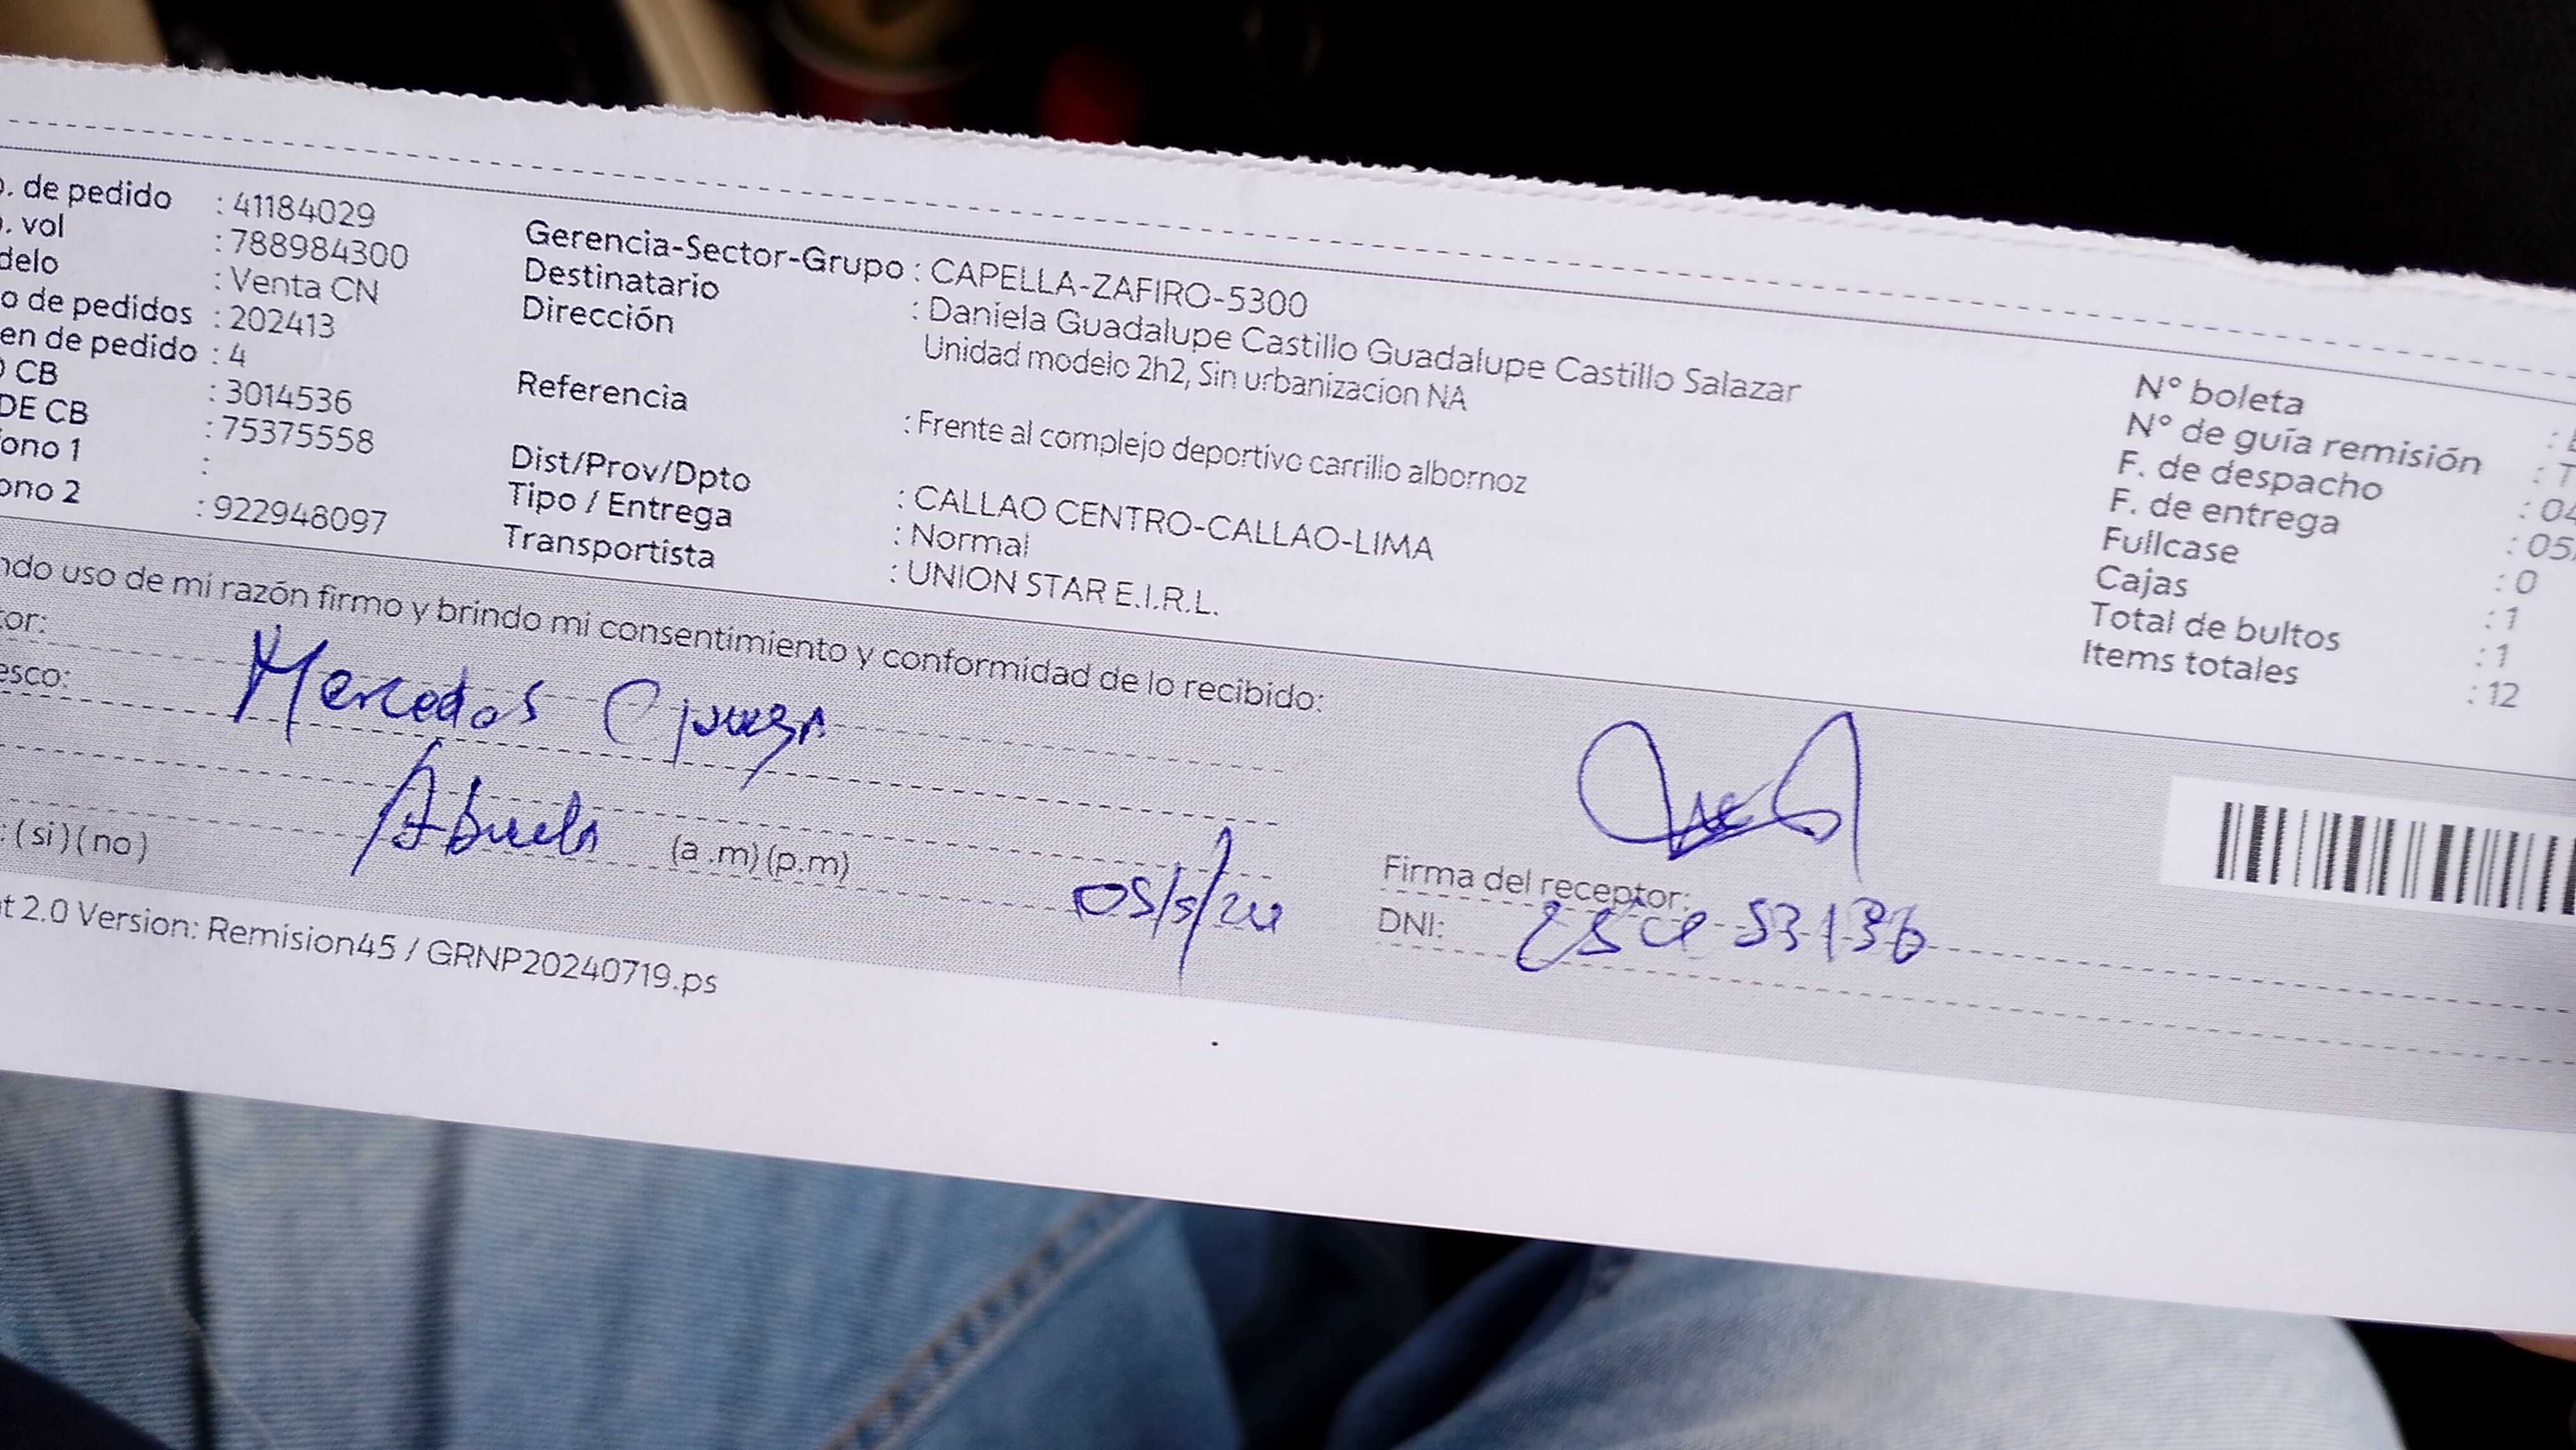 . de pedido : 41184029
. vol : 788984300
delo : Venta CN
o de pedidos : 202413
en de pedido : 4
CB : 3014536
DE CB : 75375558
ono 1 :
ono 2 : 922948097
Gerencia-Sector-Grupo : CAPELLA-ZAFIRO-5300
Destinatario : Daniela Guadalupe Castillo Guadalupe Castillo Salazar
Dirección Unidad modelo 2h2, Sin urbanizacion NA
Referencia : Frente al complejo deportivo carrillo albornoz
Dist/Prov/Dpto : CALLAO CENTRO-CALLAO-LIMA
Tipo / Entrega : Normal
Transportista : UNION STAR E.I.R.L.
N° boleta :
N° de guía remisión : T
F. de despacho : 04
F. de entrega : 05
Fullcase : 0
Cajas : 1
Total de bultos : 1
Items totales : 12
ndo uso de mi razón firmo y brindo mi consentimiento y conformidad de lo recibido:
tor: Mercedes
esco: Abuela
: (si)(no) (a .m)(p.m) 05/5/24
Firma del receptor:
DNI:
t 2.0 Version: Remision45 / GRNP20240719.ps